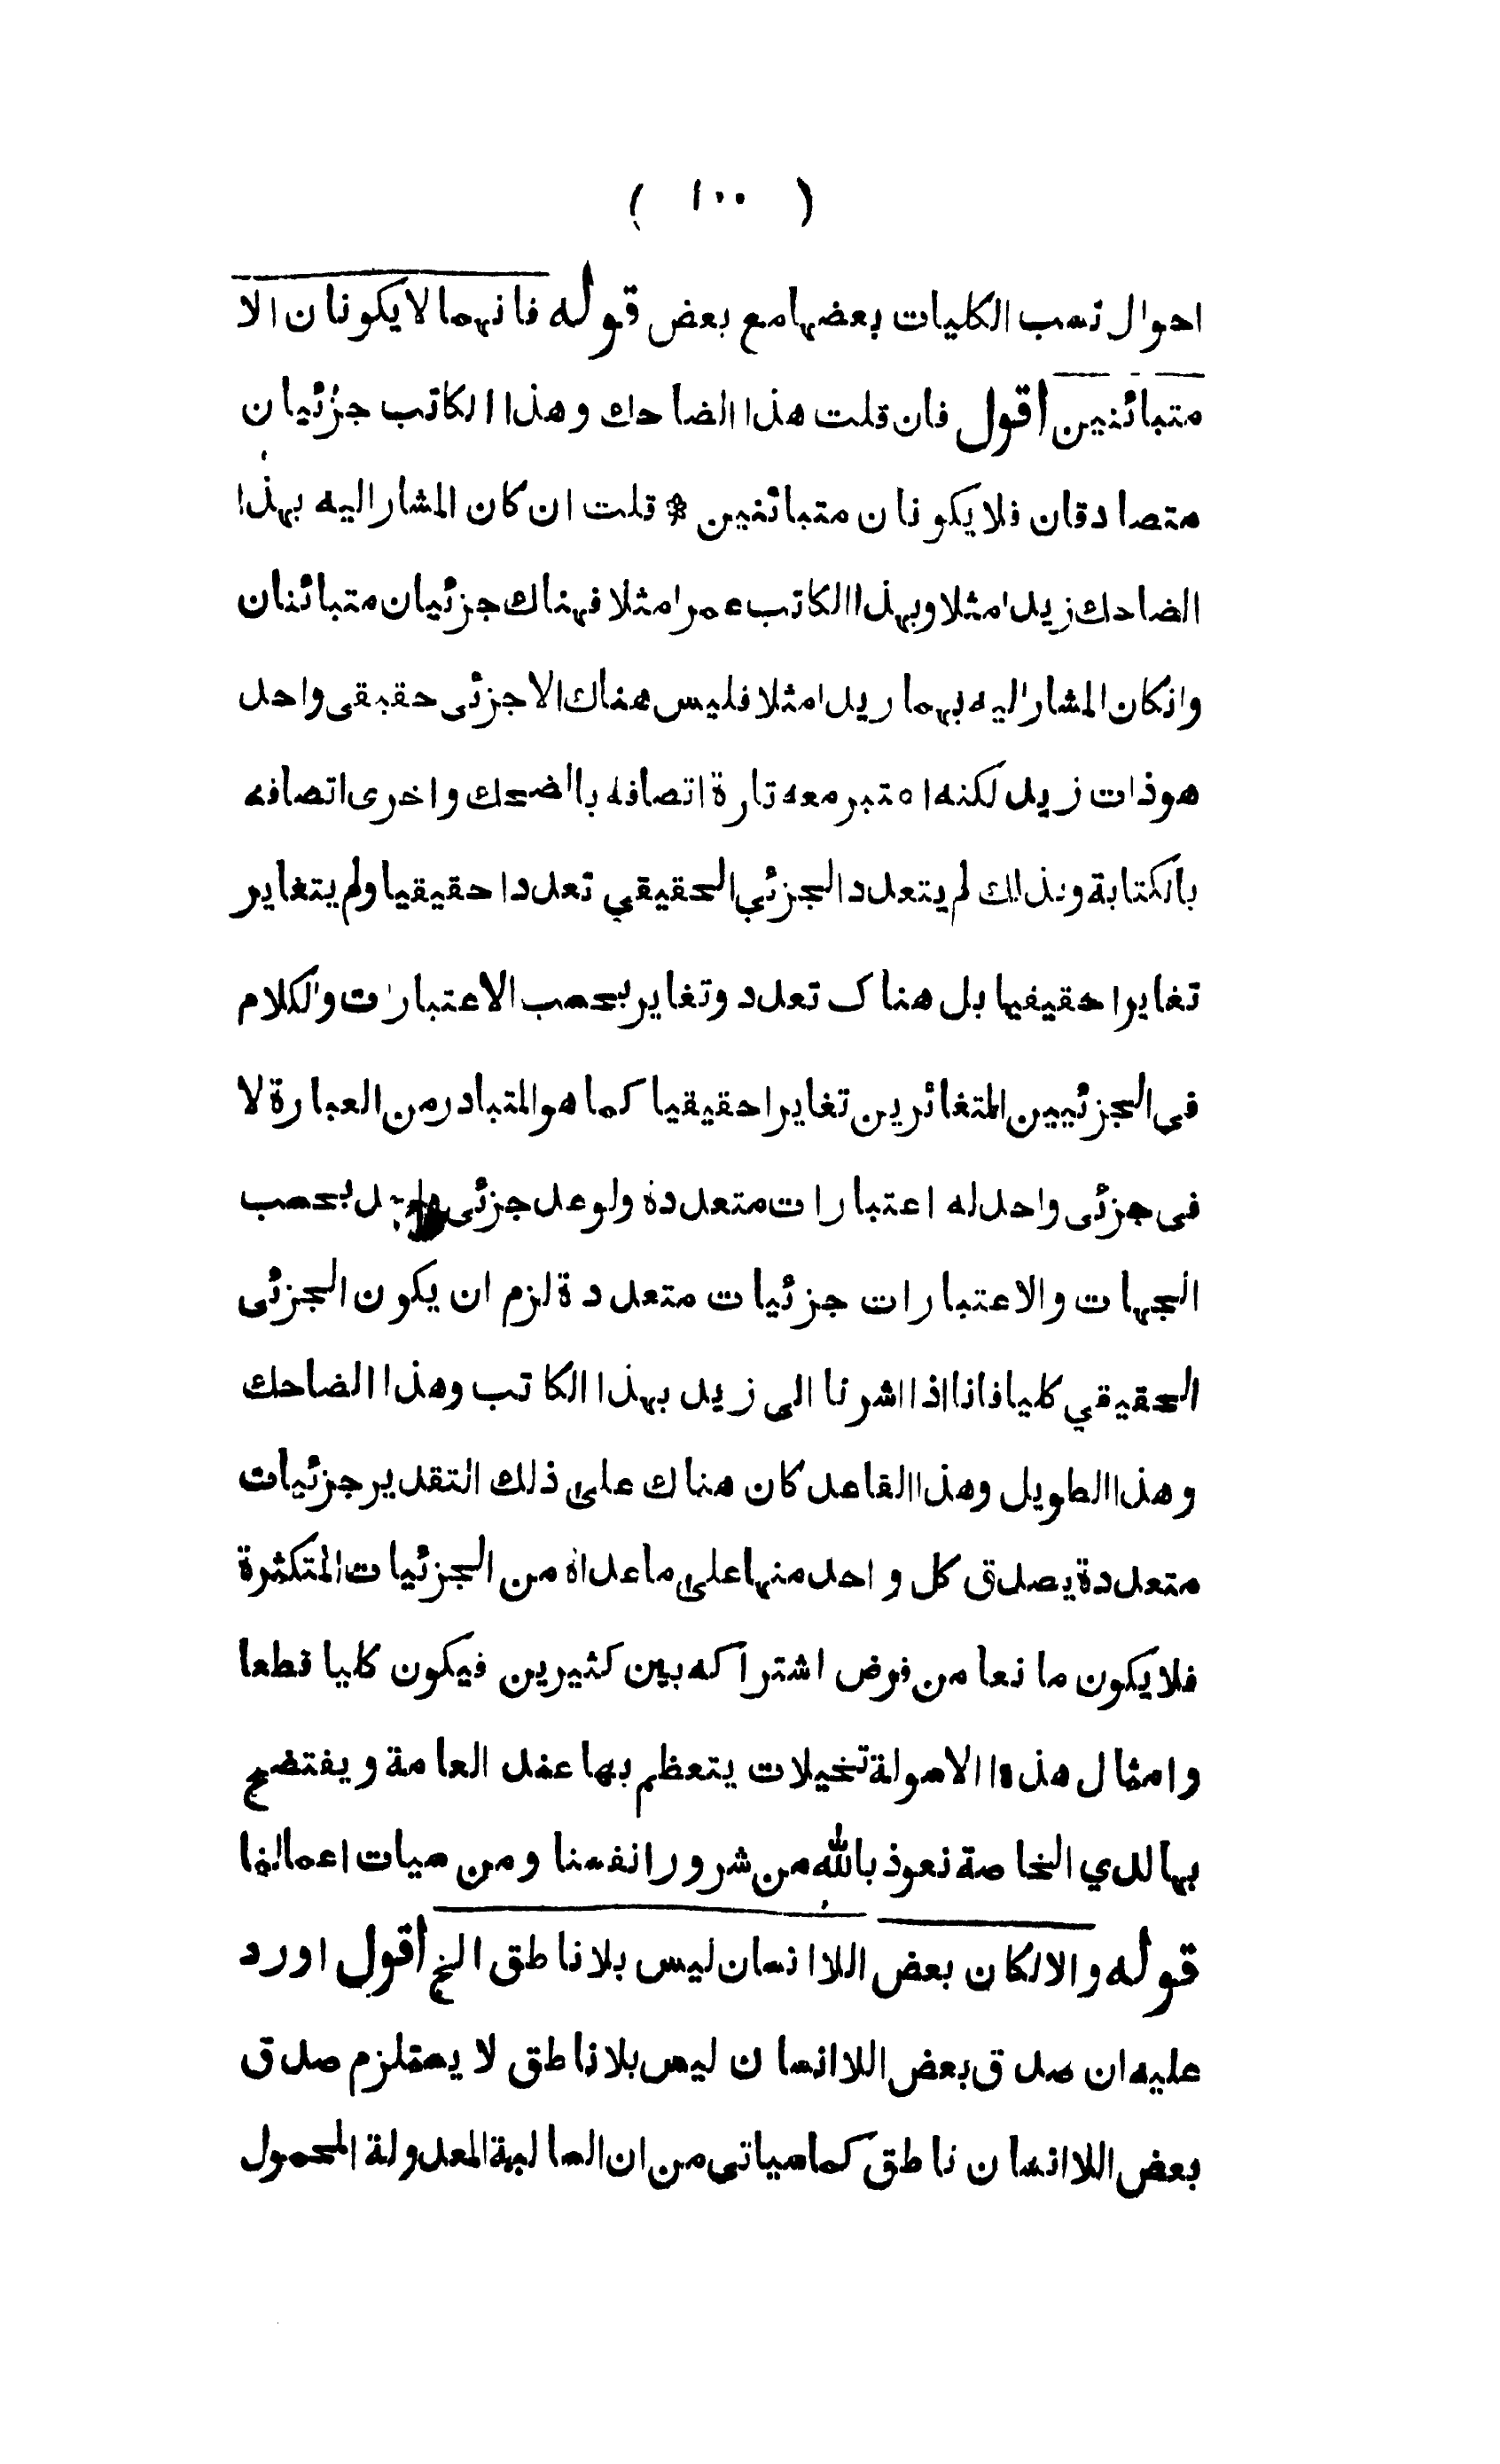 ( ١٠٠ )
احوال نسب الكليات بعضها مع بعض قوله فانهما لا يكونان الا
متبائنين أقول فان قلت هذا الضاحك وهذا الكاتب جزئيان
متصادقان فلا يكونان متبائنين * قلت ان كان المشار اليه بهذا
الضاحك زيدا مثلا وبهذا الكاتب عمرا مثلا فهناك جزئيان متبائنان
وانكان المشار اليه بهما زيدا مثلا فليس هناك الا جزئى حقيقى واحد
هو ذات زيد لكنه اعتبر معه تارة اتصافه بالضحك واخرى اتصافه
بالكتابة وبذلك لم يتعدد الجزئي الحقيقي تعددا حقيقيا ولم يتغاير
تغايرا حقيقيا بل هناك تعدد وتغاير بحسب الاعتبارات والكلام
فى الجزئيين المتغائرين تغايرا حقيقيا كما هو المتبادر من العبارة لا
فى جزئى واحد له اعتبارات متعددة ولو عد جزئى واحد بحسب
الجهات والاعتبارات جزئيات متعددة لزم ان يكون الجزئى
الحقيقي كليا فانا اذا اشرنا الى زيد بهذا الكاتب وهذا الضاحك
وهذا الطويل وهذا القاعد كان هناك على ذلك التقدير جزئيات
متعددة يصدق كل واحد منها على ما عداه من الجزئيات المتكثرة
فلا يكون مانعا من فرض اشتراكه بين كثيرين فيكون كليا قطعا
وامثال هذه الاسولة تخيلات يتعظم بها عند العامة ويفتضح
بها لدي الخاصة نعوذ بالله من شرور انفسنا ومن سيات اعمالنا
قوله والا لكان بعض اللاانسان ليس بلا ناطق الخ أقول اورد
عليه ان صدق بعض اللاانسان ليس بلا ناطق لا يستلزم صدق
بعض اللاانسان ناطق كما سياتى من ان السالبة المعدولة المحمول